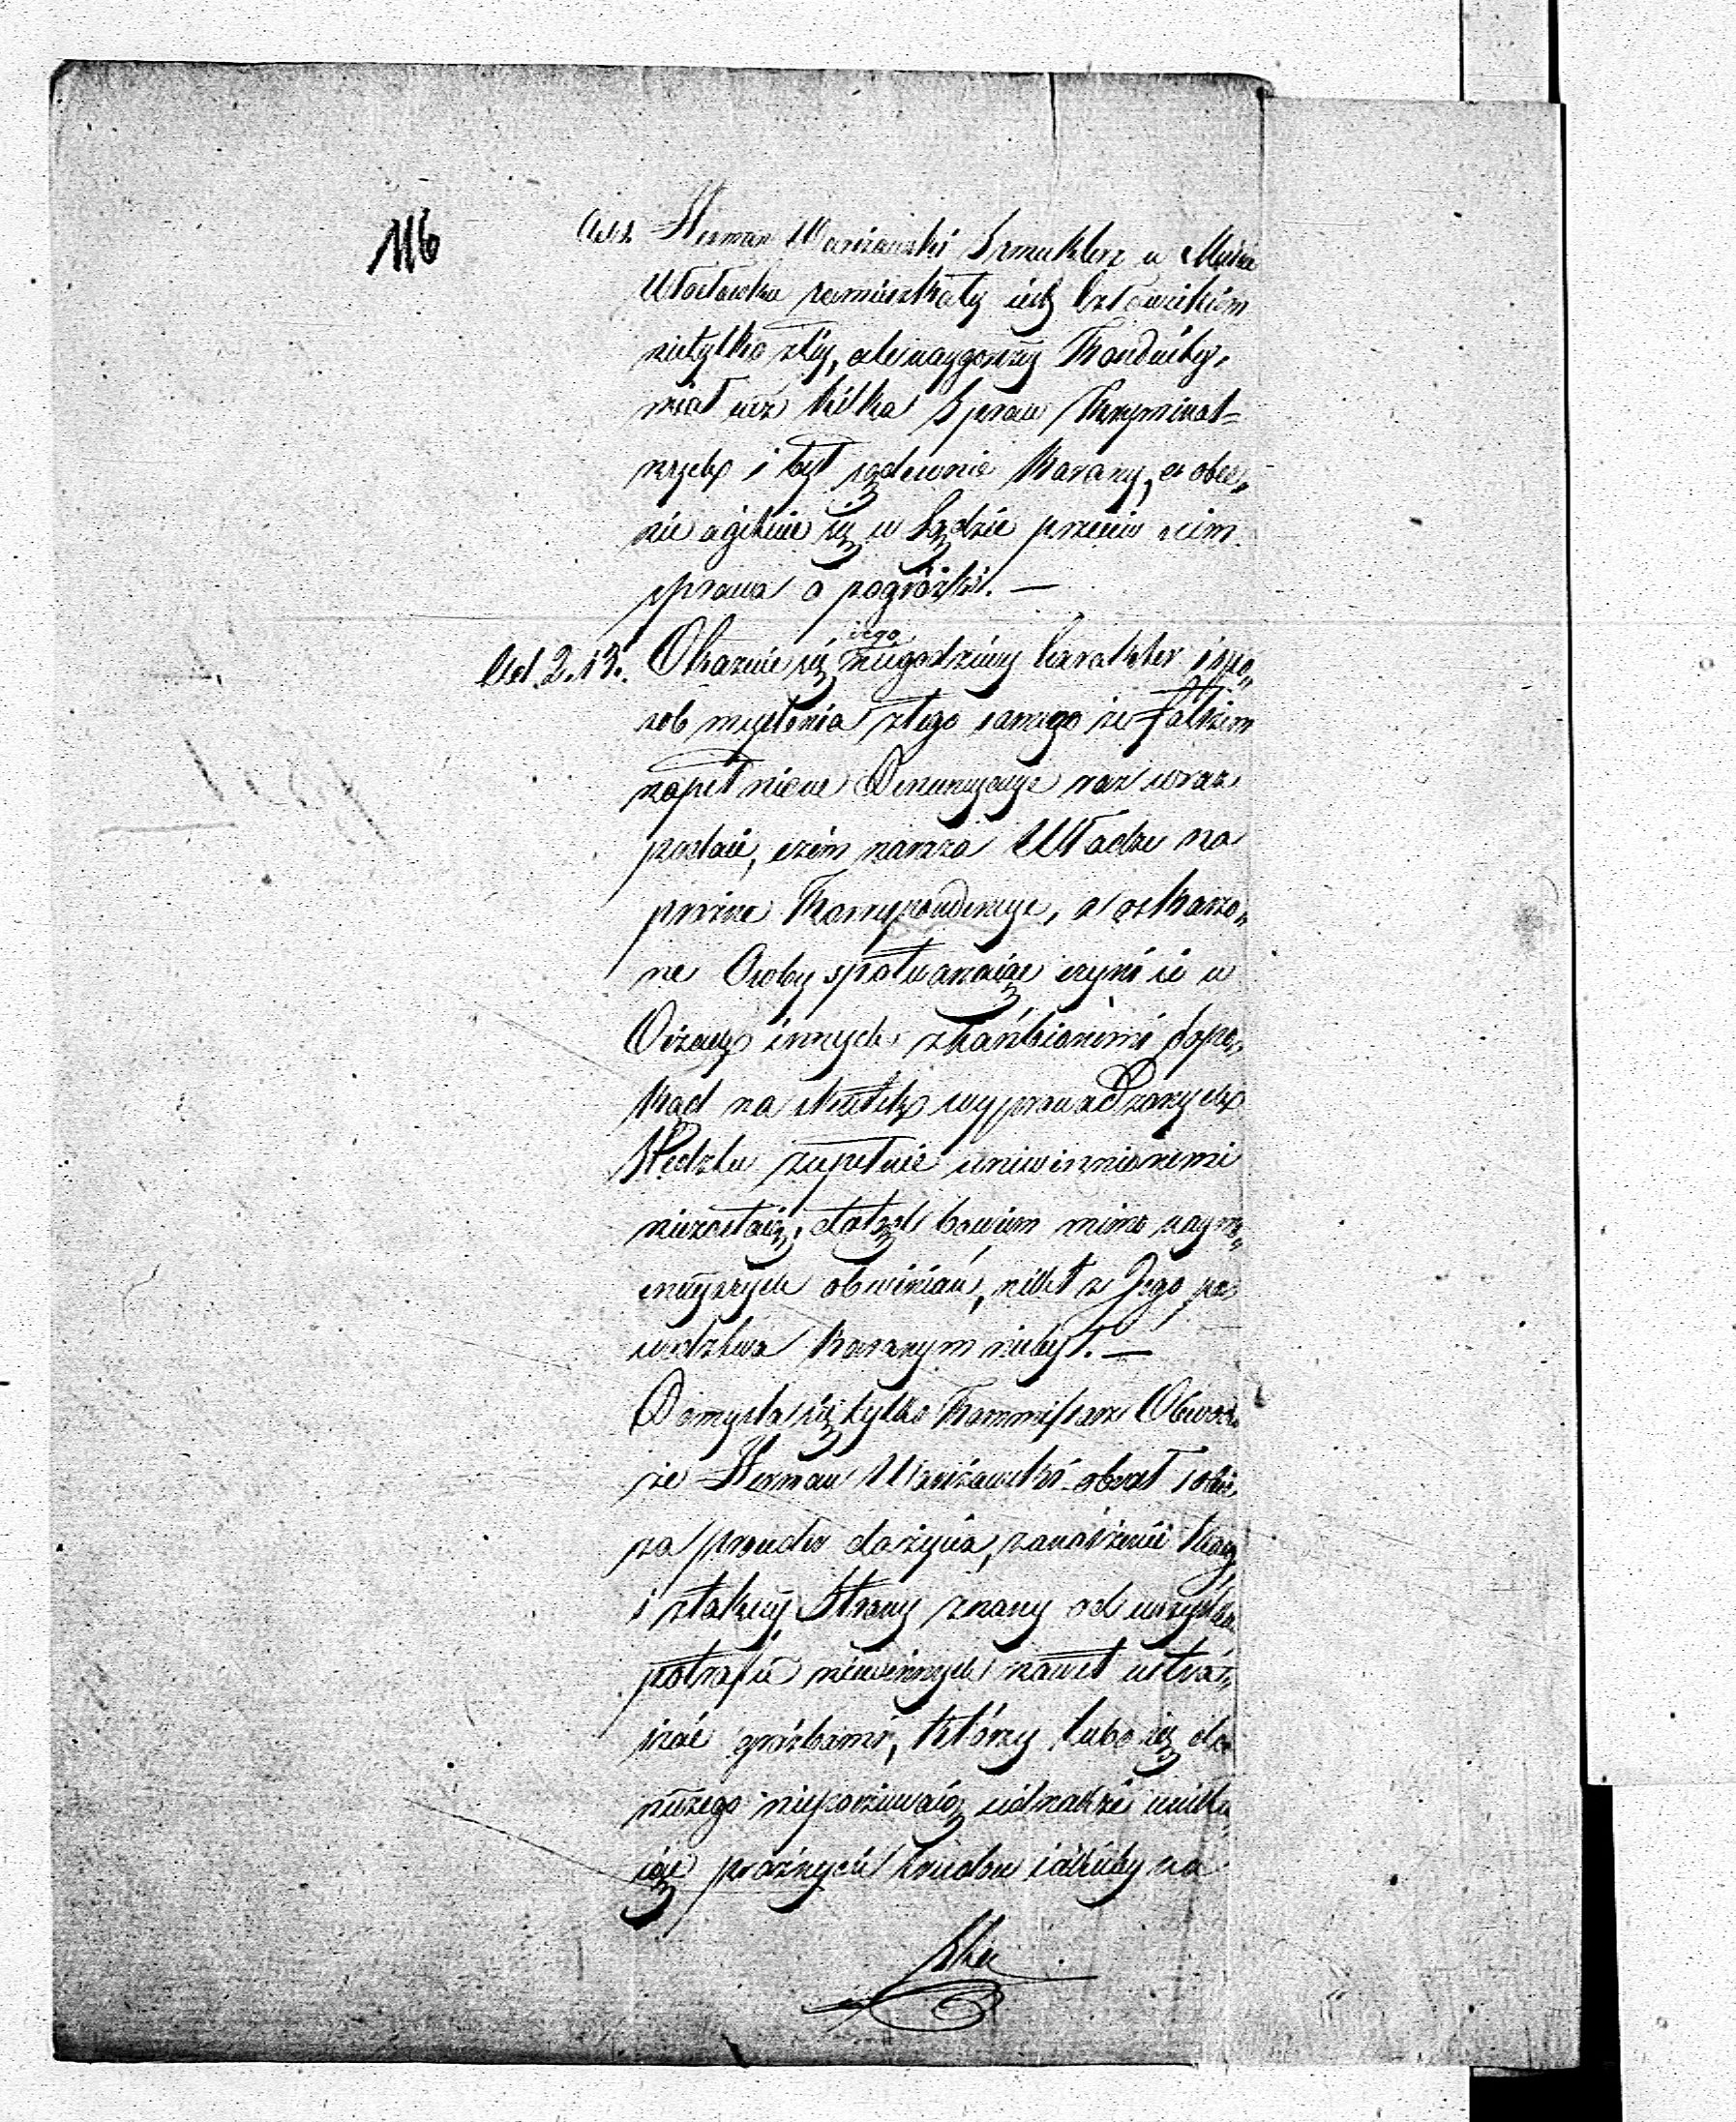 116
Ad 1. Herman Warszawski Szmuklerz w Mieście
Włocławku zamieszkały iest Człowiekiem
nietylko złéy, ale naygorszéy Konduity,
miał iuż kilka Spraw Kryminal=
nych i był sądownie karany, a obec„
nie agituie się w Sądzie przeciw niem
sprawa o pogróżki. —
Ad 2. i 3. Okazuie się iego niegodziwy Carakter i spo„
sob myślenia ztego samego że fałszem
napełnione Denuncyacye raz wraz
podaie, czém naraża Władze na
próżne Korrespondencye, a oskarżo„
ne Osoby spotwarzaiąc czyni ie w
Oczach innych zhańbionemi dopo„
kąd na skutek wyprowadzonych
Śledztw zupełnie uniewinnionemi
niezostaią, dotąd bowiem mimo naymo„
cnieyszych obwinień, nikt z Jego po
wództwa karanym niebył. —
Domyśla się tylko Kommissarz Obwodu
że Herman Warszawski obrał sobie
za prawdło do życia, zanoszenie skarg,
i ztakiey Strony znany od wszystkich
potrafia niewinnych nawet ustra„
szać groźbami, którzy lubo się do
niczego niepoczuwaią iednakże unika
iąc próżnych trudów iakieby na
Ska